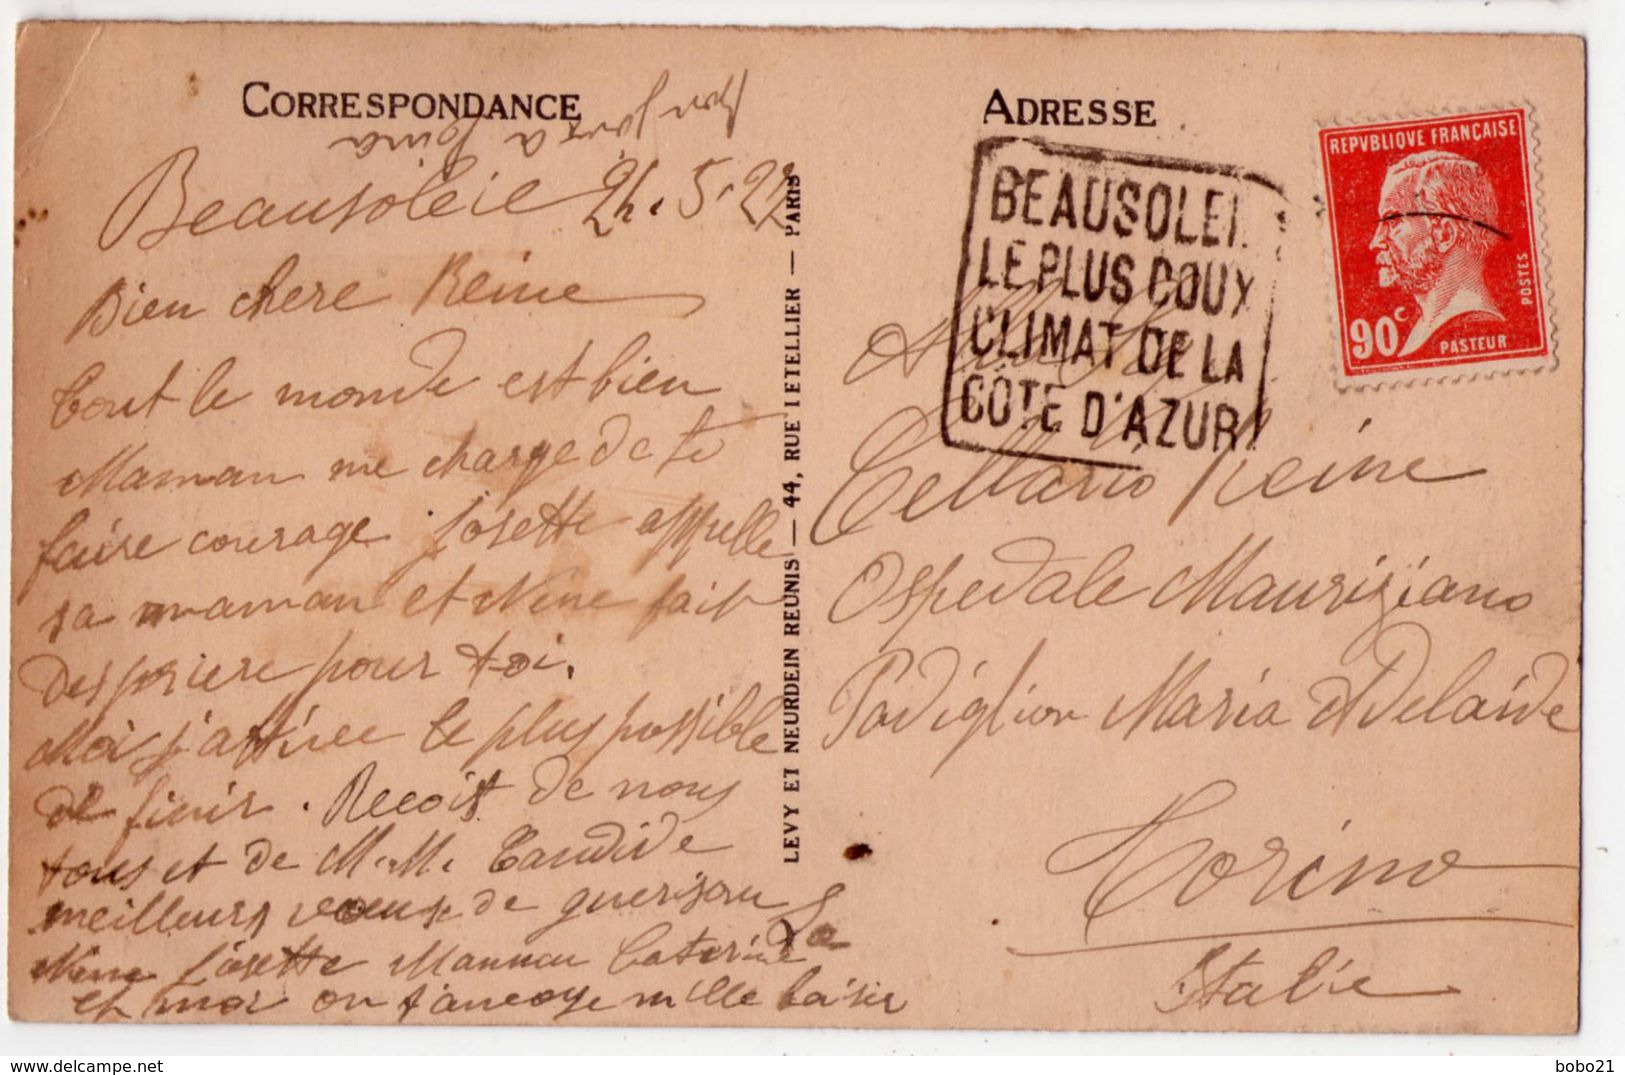 CORRESPONDANCE
bonjour a
Beausoleil 24.5.27
Bien chere Reine
tout le monde est bien
Maman me charge de te
faire courage Josette appelle
sa maman et Nine fait
des priere pour toi.
Moi j'
le plus possible
de finir. Recoit de nous
tous et de M. M. Candide
meilleurs voeux de guerison
Nine Josette Maman Caterine
et moi on t'anvoye mille baiser
LEVY ET NEURDEIN REUNIS — 44, RUE LETELLIER — PARIS
ADRESSE
BEAUSOLEIL
LE PLUS DOUX
CLIMAT DE LA
CÔTE D'AZUR!
REPVBLIQVE FRANÇAISE
POSTES
90c
PASTEUR
Cellario Reine
Ospedale Mauriziano
Padiglion Maria Adelaide
Torino
Italie
bobo21